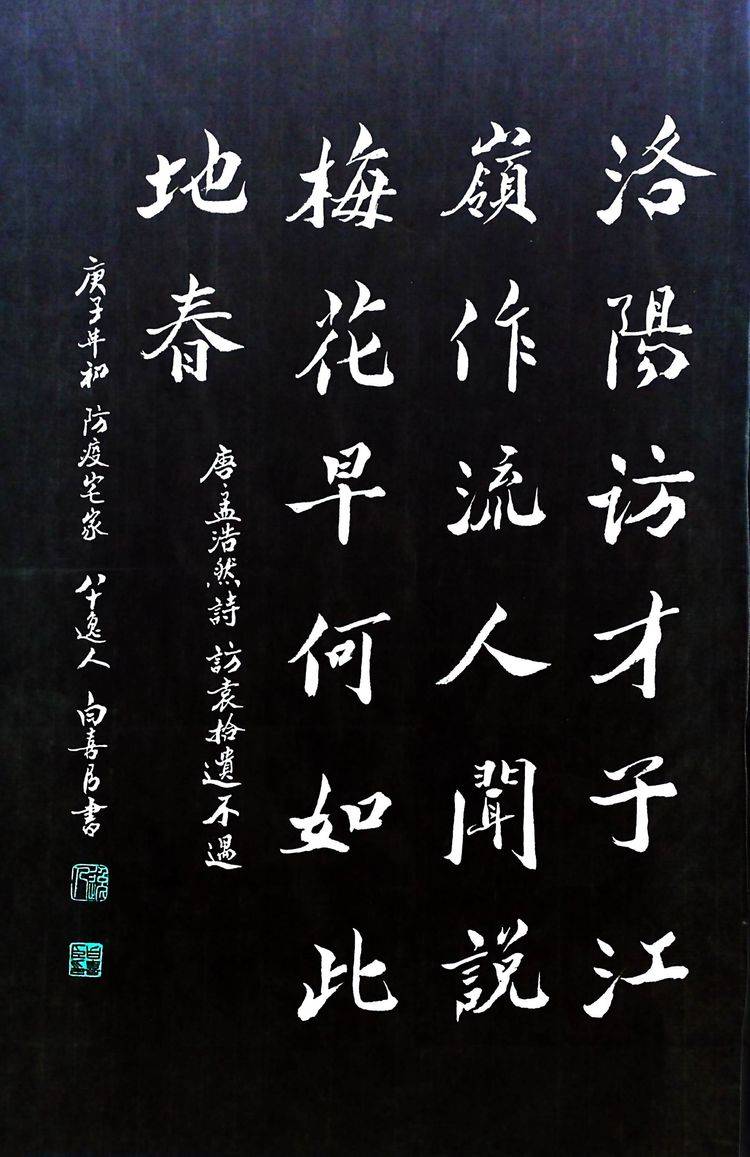 洛陽访才子江
嶺作流人聞説
梅花早何如此
地春
唐孟浩然詩 訪袁拾遺不遇
庚子年初 防疫宅家 八十逸人 向喜月書